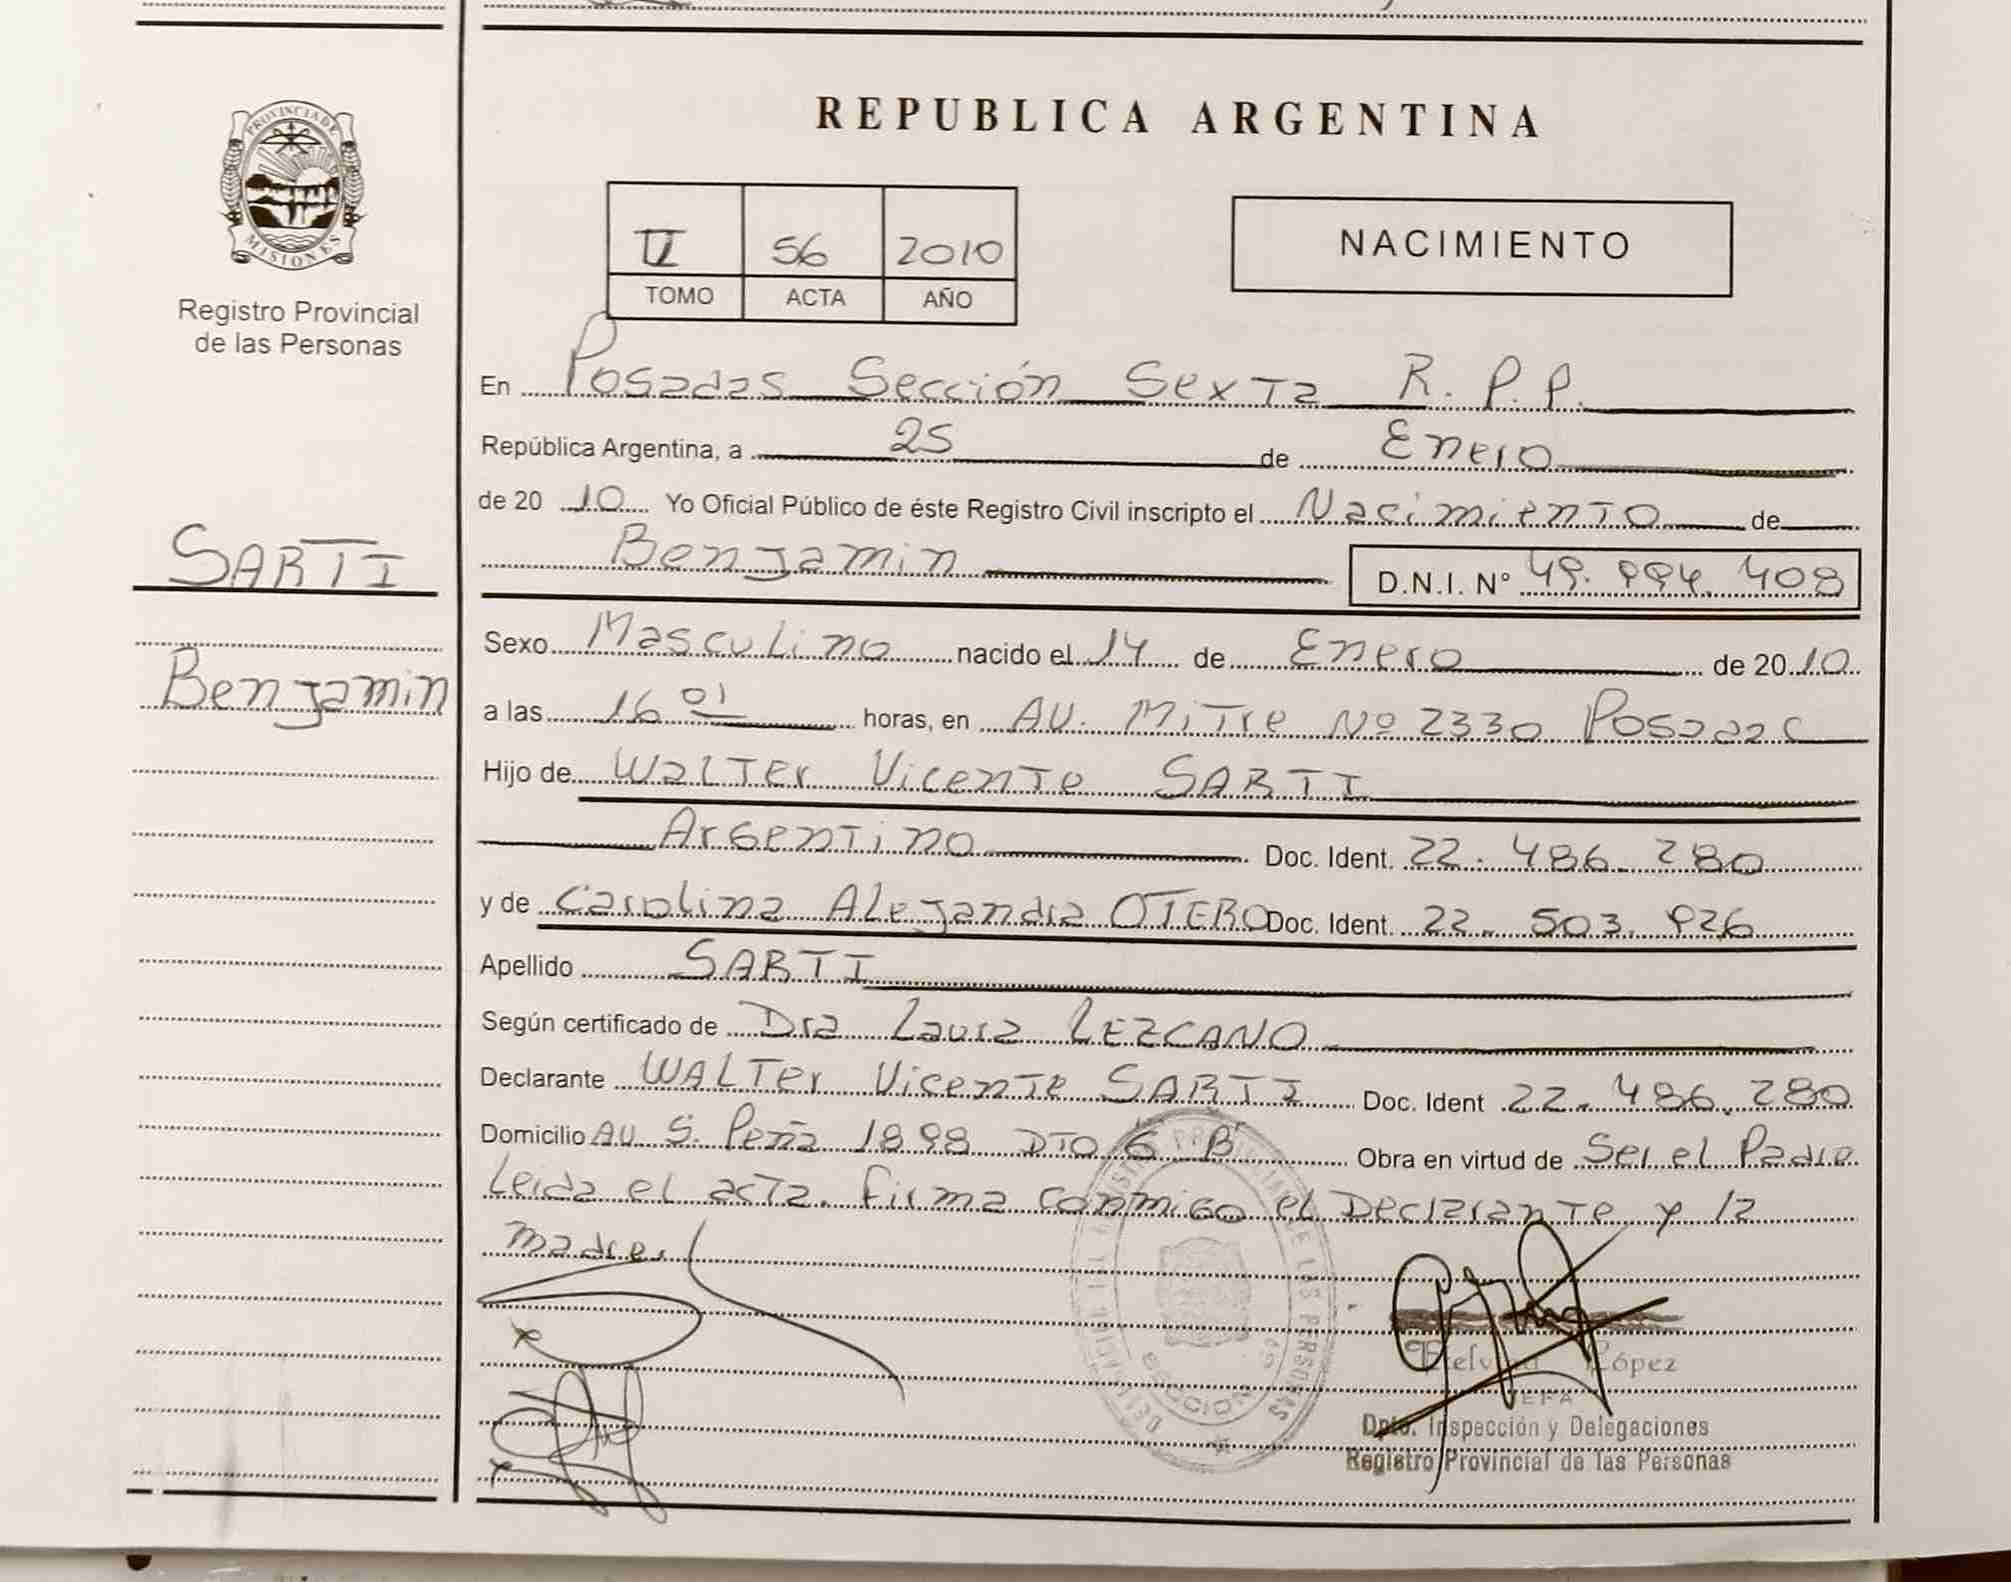 REPUBLICA ARGENTINA
PROVINCIA DE
MISIONES
Registro Provincial
de las Personas
56 2010
TOMO ACTA AÑO
NACIMIENTO
En Posadas Sección Sexta R. P. P.
República Argentina, a 25 de Enero
de 20 10 Yo Oficial Público de éste Registro Civil inscripto el Nacimiento de
Benjamin D.N.I. Nº 49.994.408
SARTI
Benjamin
Sexo Masculino nacido el 14 de Enero de 20 10
a las 16 01 horas, en AV. Mitre Nº 2330 Posadas
Hijo de Walter Vicente SARTI
Argentino Doc. Ident. 22.486.280
y de Carolina Alejandra OTERO Doc. Ident. 22.503.926
Apellido SARTI
Según certificado de Dra Laura LEZCANO
Declarante WALTer Vicente SARTI Doc. Ident 22.486.280
Domicilio AV. S. Peña 1898 DTO 6 B Obra en virtud de Ser el Padre
Leida el acta. Firma conmigo el Declarante y la
madre.
López
Dpto. Inspección y Delegaciones
Registro Provincial de las Personas